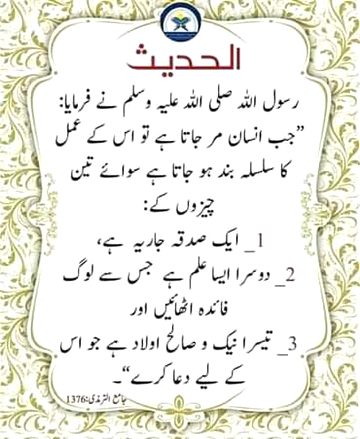 الحدیث
رسول اللہ صلی اللہ علیہ وسلم نے فرمایا:
”جب انسان مر جاتا ہے تو اس کے عمل
کا سلسلہ بند ہو جاتا ہے سوائے تین
چیزوں کے:
1_ ایک صدقہ جاریہ ہے،
2_ دوسرا ایسا علم ہے جس سے لوگ
فائدہ اٹھائیں اور
3_ تیسرا نیک و صالح اولاد ہے جو اس
کے لیے دعا کرے“۔
جامع الترمذی:1376